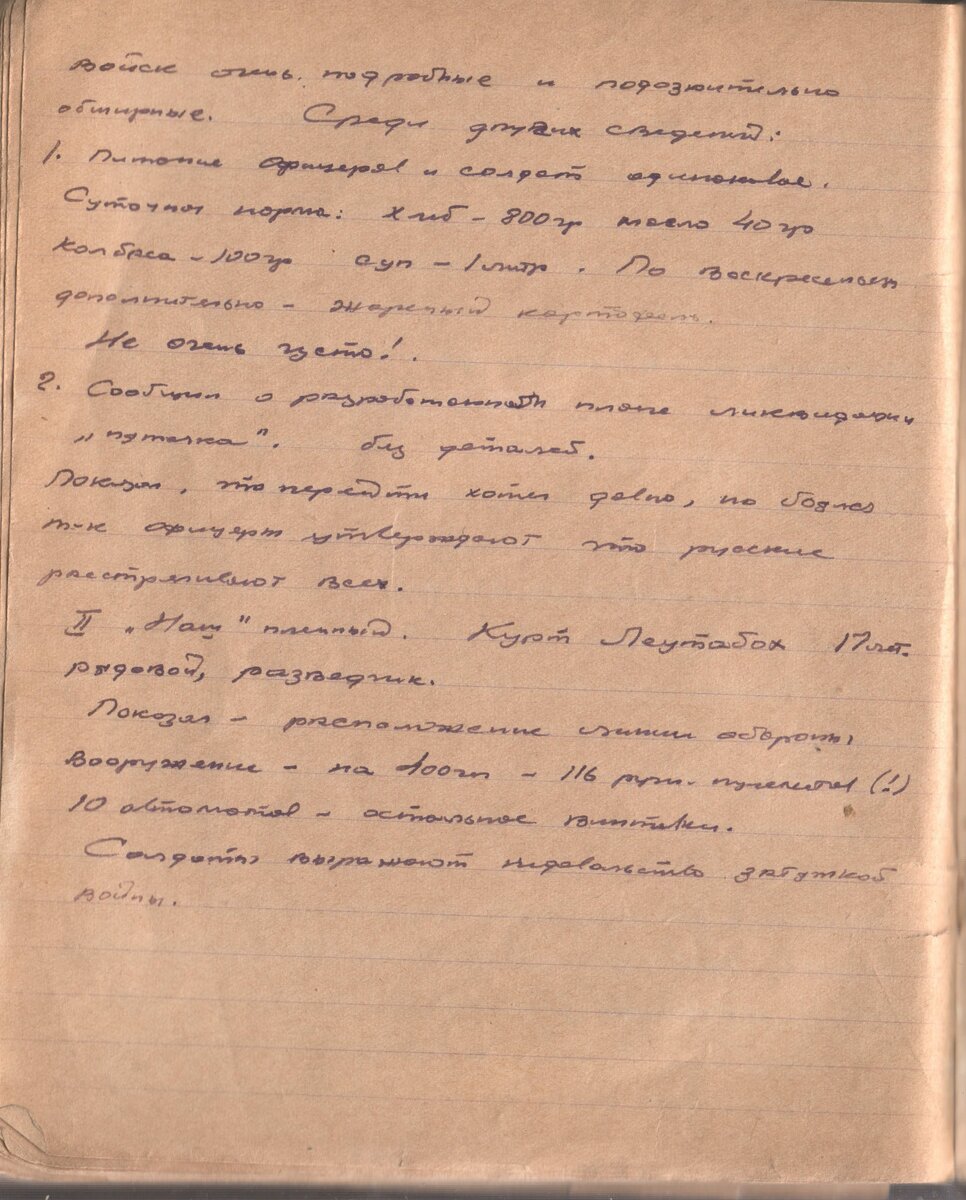 войск очень подробные и подозрительно
обширные. Среди других сведений:
1. Питание офицеров и солдат одинаковое.
Суточная норма: хлеб – 800гр масло 40гр
Колбаса – 100гр суп – 1 литр. По воскресеньям
дополнительно – жареный картофель.
Не очень густо!.
2. Сообщил о разработанном плане ликвидации
„пятачка". без деталей.
Показал, что перейти хотел давно, но боялся
т-к офицеры утверждают что русские
расстреливают всех.
II „Наш" пленный. Курт Леутабох 17 лет.
рядовой, разведчик.
Показал – расположение линии обороны
Вооружение – на 100чел – 116 ручн. пулеметов (!)
10 автоматов – остальное винтовки.
Солдаты выражают недовольство затяжкой
войны.